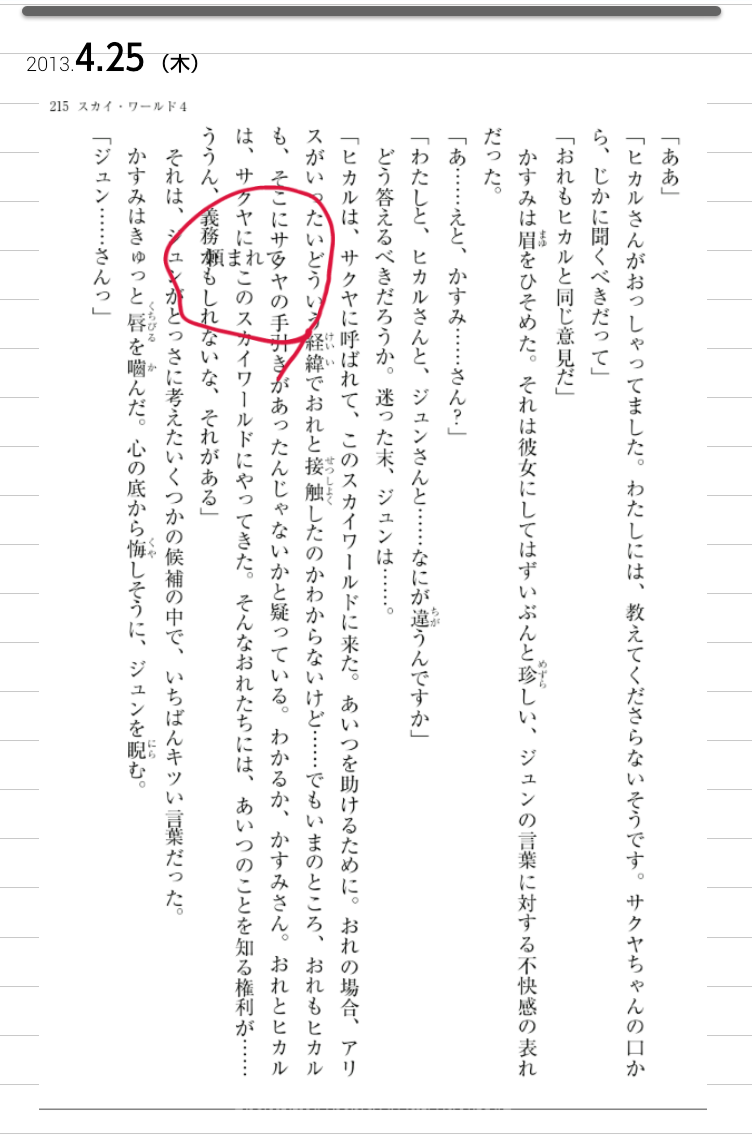 2013.4.25（木）
215 スカイ・ワールド4
「ああ」
「ヒカルさんがおっしゃってました。わたしには、教えてくださらないそうです。サクヤちゃんの口か
ら、じかに聞くべきだって」
「おれもヒカルと同じ意見だ」
かすみは眉をひそめた。それは彼女にしてはずいぶんと珍しい、ジュンの言葉に対する不快感の表れ
だった。
「あ……えと、かすみ……さん？」
「わたしと、ヒカルさんと、ジュンさんと……なにが違うんですか」
どう答えるべきだろうか。迷った末、ジュンは……。
「ヒカルは、サクヤに呼ばれて、このスカイワールドに来た。あいつを助けるために。おれの場合、アリ
スがいったいどういう経緯でおれと接触したのかわからないけど……でもいまのところ、おれもヒカル
も、そこにサクヤの手引きがあったんじゃないかと疑っている。わかるか、かすみさん。おれとヒカル
は、サクヤに頼まれてこのスカイワールドにやってきた。そんなおれたちには、あいつのことを知る権利が……
ううん、義務かもしれないな、それがある」
それは、ジュンがとっさに考えたいくつかの候補の中で、いちばんキツい言葉だった。
かすみはきゅっと唇を噛んだ。心の底から悔しそうに、ジュンを睨む。
「ジュン……さんっ」